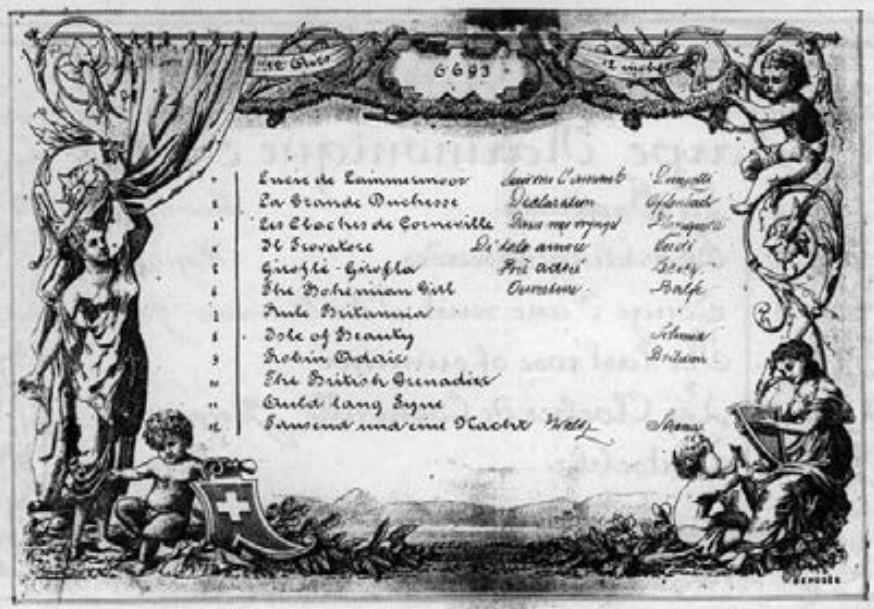 12 Airs 6693 12 inches
1 Lucie de Lammermoor Donizetti
2 La Grande Duchesse Déclaration Offenbach
3 Les Cloches de Corneville Dans mes voyages Planquette
4 Il Trovatore Di tale amore Verdi
5 Giroflé Girofla Lecocq
6 The Bohemian Girl Ouverture Balfe
7 Rule Britannia
8 Isle of Beauty
9 Robin Adair
10 The British Grenadier
11 Auld lang Syne
12 Tausend und eine Nacht Walz Strauss
DEPOSÉE